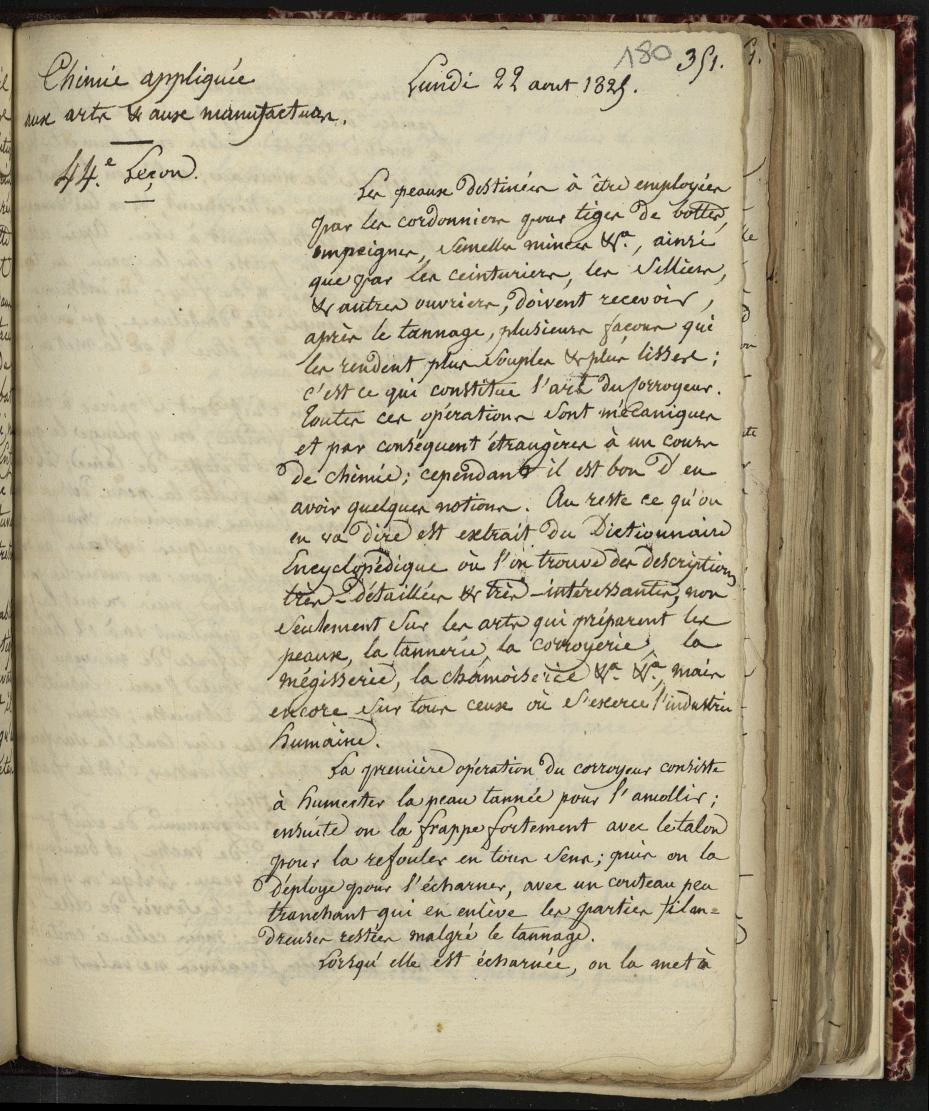 180 351.
Chimie appliquée
aux arts & aux manufactures.
Lundi 22 aout 1825.
44.e Leçon.
Les peaux destinées à être employées
par les cordonniers pour tiges de bottes,
empeignes, semelles minces &.a, ainsi
que par les ceinturiers, les selliers,
& autres ouvriers, doivent recevoir,
après le tannage, plusieurs façons qui
les rendent plus souples & plus lisses;
c'est ce qui constitue l'art du corroyeur.
Toutes ces opérations sont mécaniques
et par conséquent étrangères à un cours
de chimie; cependant il est bon d'en
avoir quelques notions. Au reste ce qu'on
en va dire est extrait du Dictionnaire
Encyclopédique où l'on trouve des descriptions
très-détaillées & très-intéressantes, non
seulement sur les arts qui préparent les
peaux, la tannerie, la corroyerie, la
mégisserie, la chamoiserie &.a &.a, mais
encore sur tous ceux où s'exerce l'industrie
humaine.
La première opération du corroyeur consiste
à humecter la peau tannée pour l'amollir;
ensuite on la frappe fortement avec le talon
pour la refouler en tous sens; puis on la
déploye pour l'écharner, avec un couteau peu
tranchant qui en enlève les parties filan=
dreuses restées malgré le tannage.
Lorsqu'elle est écharnée, on la met à